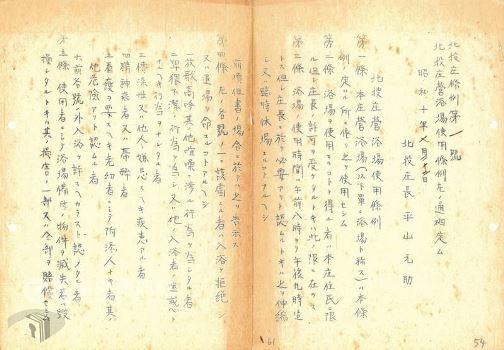 北投庄條例第一號
北投庄營浴場使用條例左ノ通相定ム
昭和十年
北投庄長 平山元助
北投庄營浴場使用條例
第一條 本庄營浴場(以下單ニ浴場ト称ス)ハ本條
例ノ定ムル所ニ依リ之ヲ使用セシム
第二條 浴場ヲ使用スルコトヲ得ル者ハ本庄住民ニ限
ル但シ庄長ノ許可ヲ受ケタルトキハ此ノ限ニ在ラス
第三條 浴場ノ使用時間ハ午前八時ヨリ午後九時迄
トス但シ庄長ニ於テ必要アリト認ムルトキハ之ヲ伸縮
シ又ハ臨時休場スルコトアルヘシ
61
54
前項但書ノ場合ニ於テハ之ヲ告示ス
第四條 左ノ各號ノ一ニ該當スル者ハ入浴ヲ拒絶シ
又ハ退場ヲ命スルコトアルヘシ
一 放歌高唱其他喧噪ニ渉ル行為ヲ為シタル者
二 卑猥不潔ノ行為ヲ為シ又ハ他ノ入浴者ニ迷惑ト
ナルヘキ行為ヲナシタル者
三 傳染性又ハ他人ノ嫌忌スヘキ疾患アル者
四 精神病者又ハ泥酔者
五 看護ヲ要スヘキ老幼者ニシテ附添人ナキ者其ノ
他危險アリト認ムル者
六 前各號ノ外入浴ヲ許スヘカラスト認メタル者
第五條 使用者ニシテ浴場備付ノ物件ヲ滅失若ハ毀
損シタルトキハ其ノ損害ノ一部又ハ全部ヲ賠償セシム